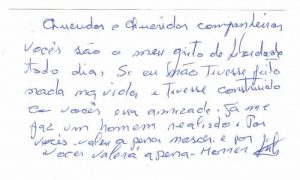 Queridos e Queridas companheiras
Vocês são o meu grito de liberdade
todo dia, Se eu não Tivesse feito
nada na vida e Tivesse construído
em vocês essa amizade. Já me
faz um homem realizado. Por
vocês valeu a pena nascer e por
vocês valerá a pena morrer